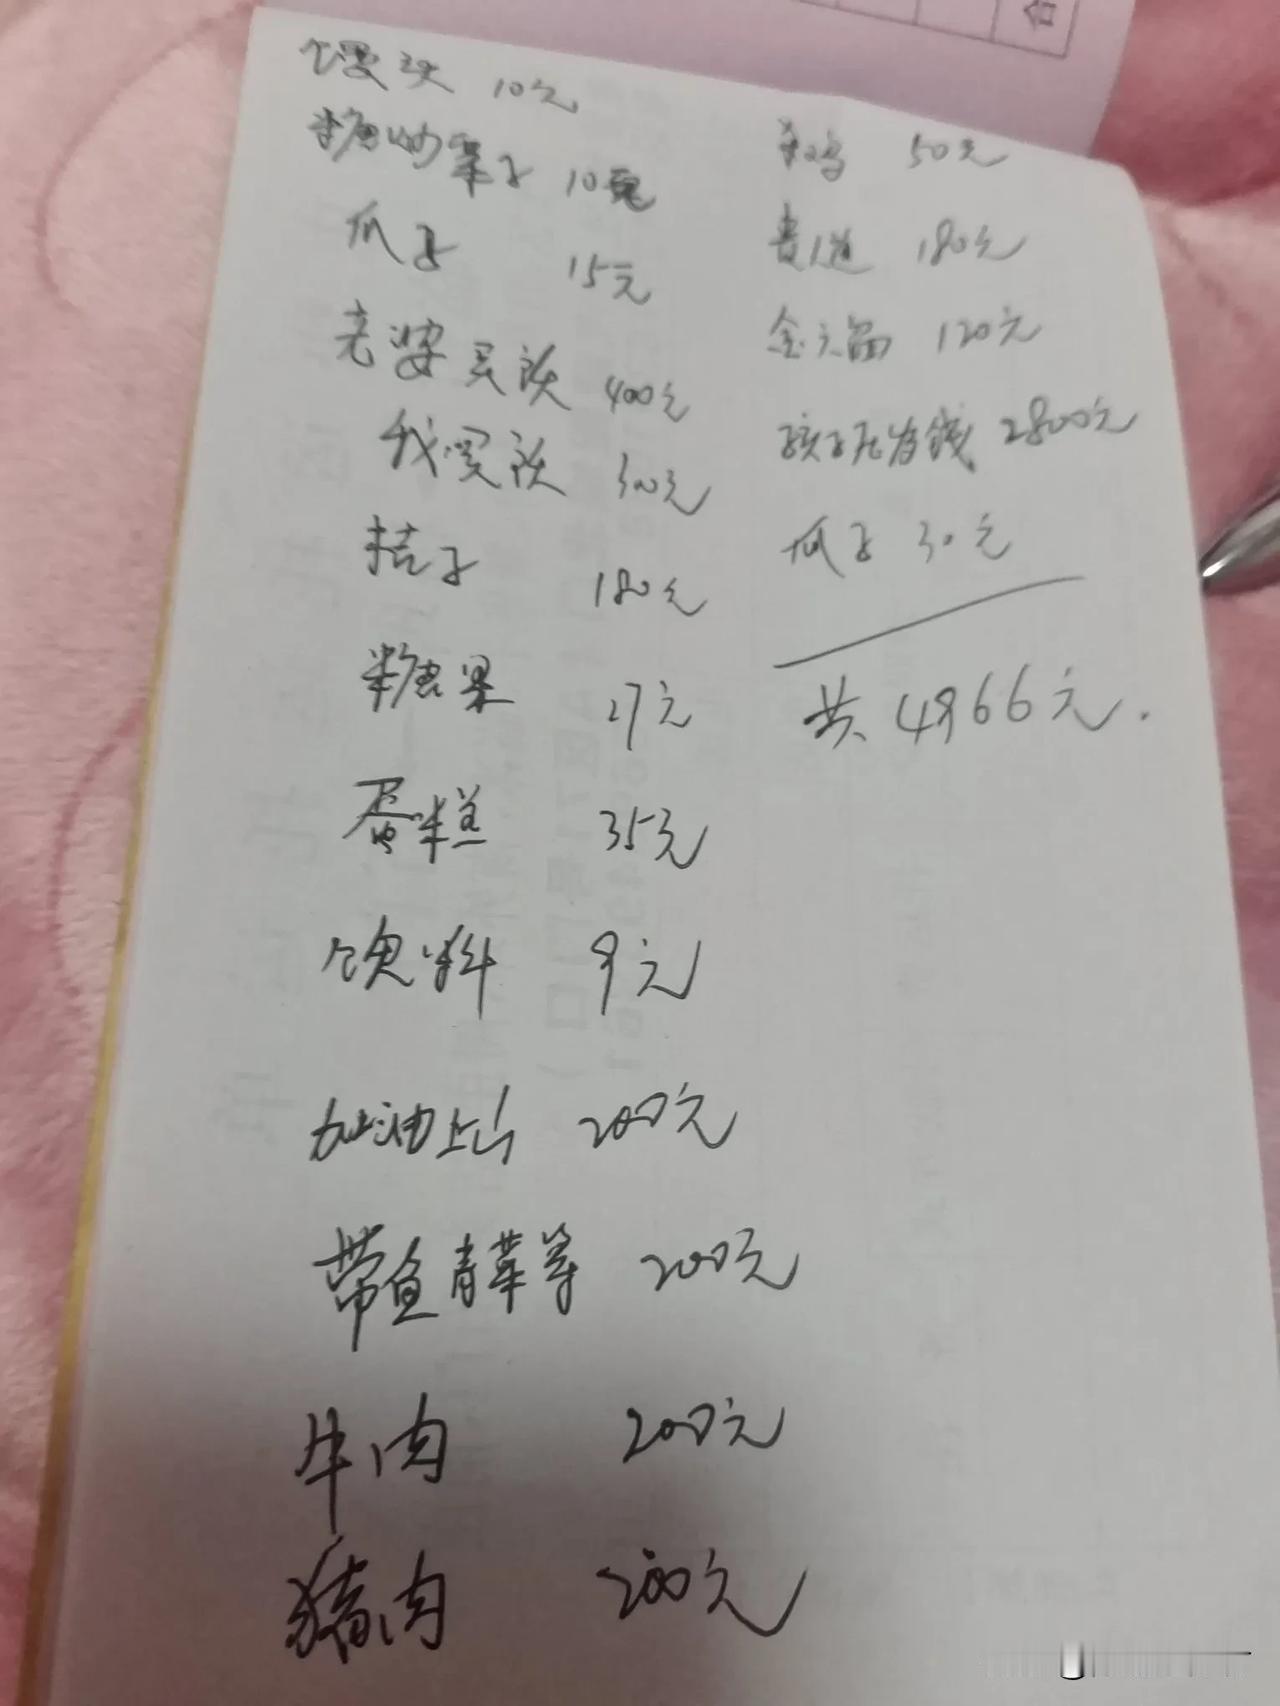 馒头 10元
糖炒栗子 10元
瓜子 15元
老婆买衣 400元
我买衣 300元
桔子 180元
糖果 27元
蛋糕 35元
饮料 9元
加油上山 200元
带鱼青菜等 200元
牛肉 200元
猪肉 200元
鸡 50元
180元
金六福 120元
孩子压岁钱 2800元
瓜子 30元
共 4966元.
合